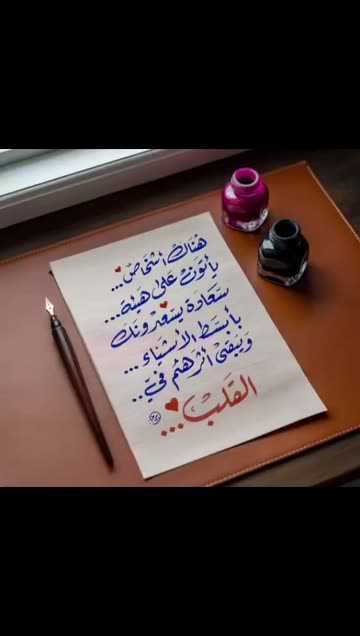 هُنَاكَ أشخَاصٌ...
يأتونَ عَلى هَيئة...
سَعَادَة يُسعدُونَك
بأبسَط الأشيَاء...
وَيبقى أثرَهُم فيّ..
القَلب...